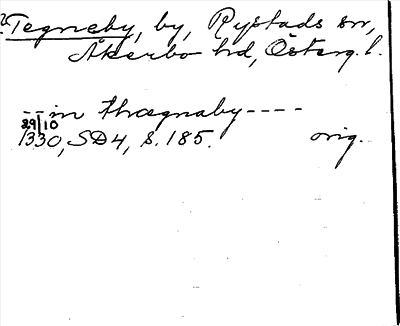 Tegneby, by, Rystads sn,
Åkerbo hd, Österg. l.
-- in thrægnaby ----
29/10
1330, SD4, S. 185. orig.